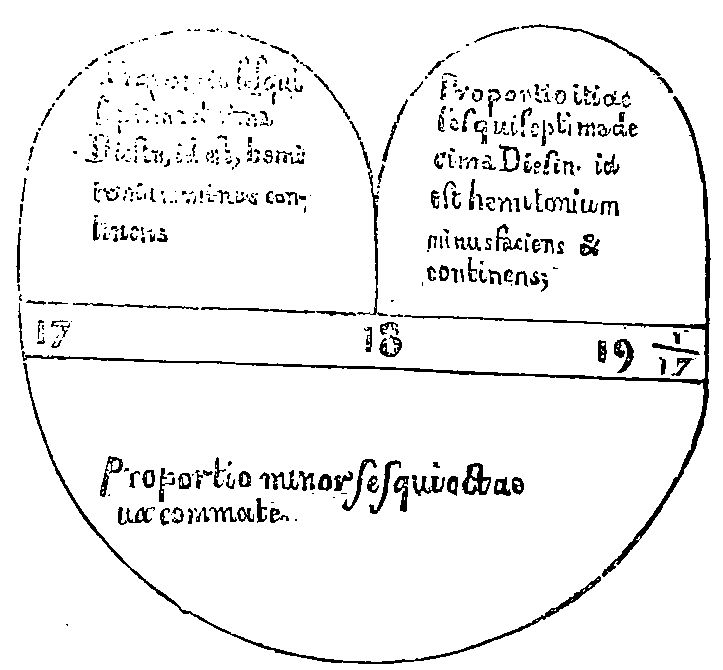 Proportio sesqui
septima decima
Diesin, id est, hemi
tonium minus con-
tinens
Proportio itidē
sesquiseptimade
cima Diesin. id
est hemitonium
minus faciens &
continens;
17 18 19 1/17
Proportio minor sesquioctao
ua commate.